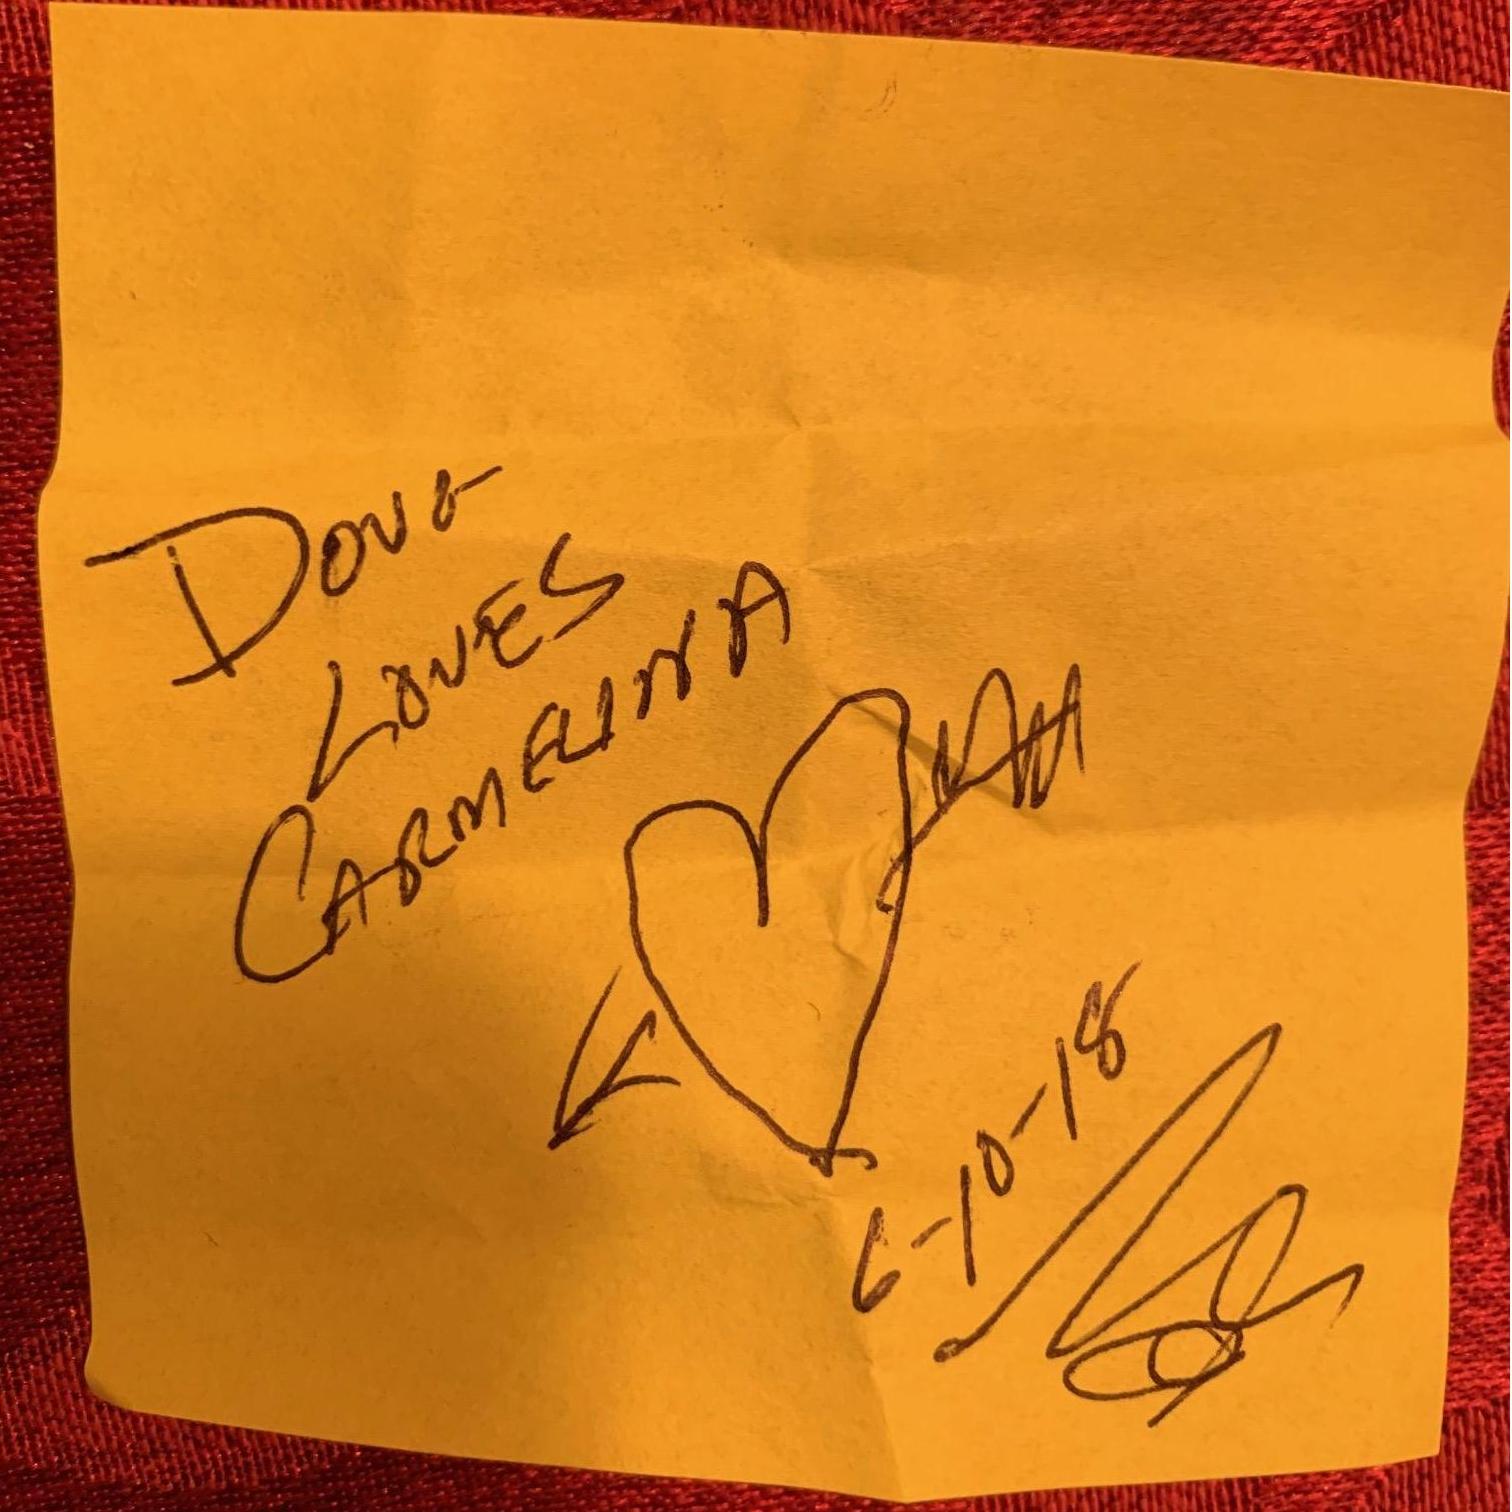 DOUG
LOVES
CARMELINA
6-10-18